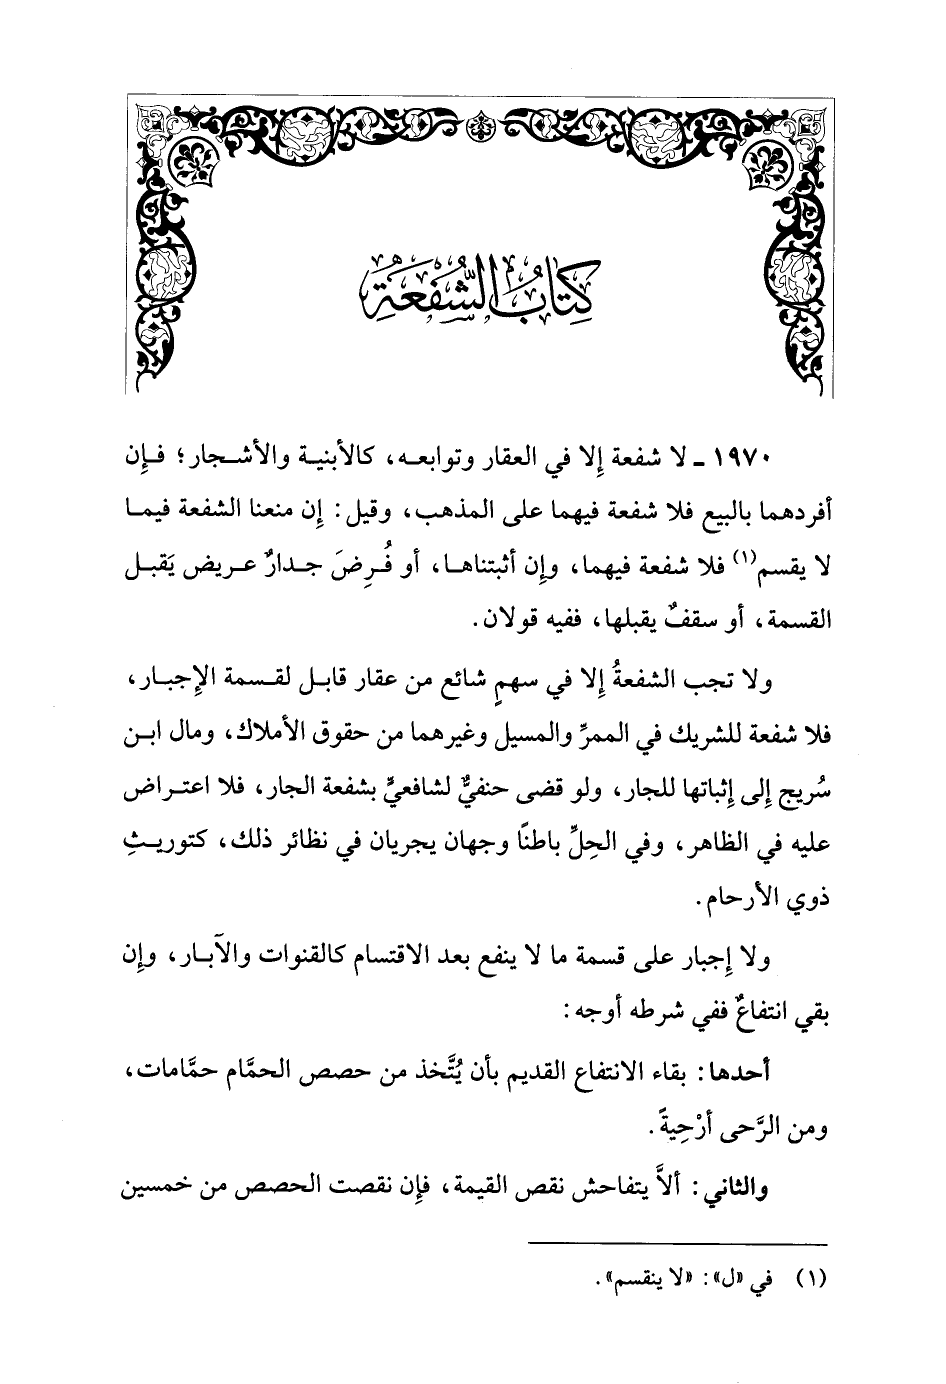 كِتَابُ الشُّفْعَةِ
١٩٧٠ ـ لا شفعة إلا في العقار وتوابعه، كالأبنية والأشجار؛ فإن
أفردهما بالبيع فلا شفعة فيهما على المذهب، وقيل: إن منعنا الشفعة فيما
لا يقسم(١) فلا شفعة فيهما، وإن أثبتناها، أو فُرِضَ جدارٌ عريض يَقبل
القسمة، أو سقفٌ يقبلها، ففيه قولان.
ولا تجب الشفعةُ إلا في سهمٍ شائع من عقار قابل لقسمة الإجبار،
فلا شفعة للشريك في الممرِّ والمسيل وغيرهما من حقوق الأملاك، ومال ابن
سُريج إلى إثباتها للجار، ولو قضى حنفيٌّ لشافعيٍّ بشفعة الجار، فلا اعتراض
عليه في الظاهر، وفي الحِلِّ باطنًا وجهان يجريان في نظائر ذلك، كتوريثِ
ذوي الأرحام.
ولا إجبار على قسمة ما لا ينفع بعد الاقتسام كالقنوات والآبار، وإن
بقي انتفاعٌ ففي شرطه أوجه:
أحدها: بقاء الانتفاع القديم بأن يُتَّخذ من حصص الحمَّام حمَّامات،
ومن الرَّحى أرْحِيةً.
والثاني: ألاَّ يتفاحش نقص القيمة، فإن نقصت الحصص من خمسين
(١) في «ل»: «لا ينقسم».